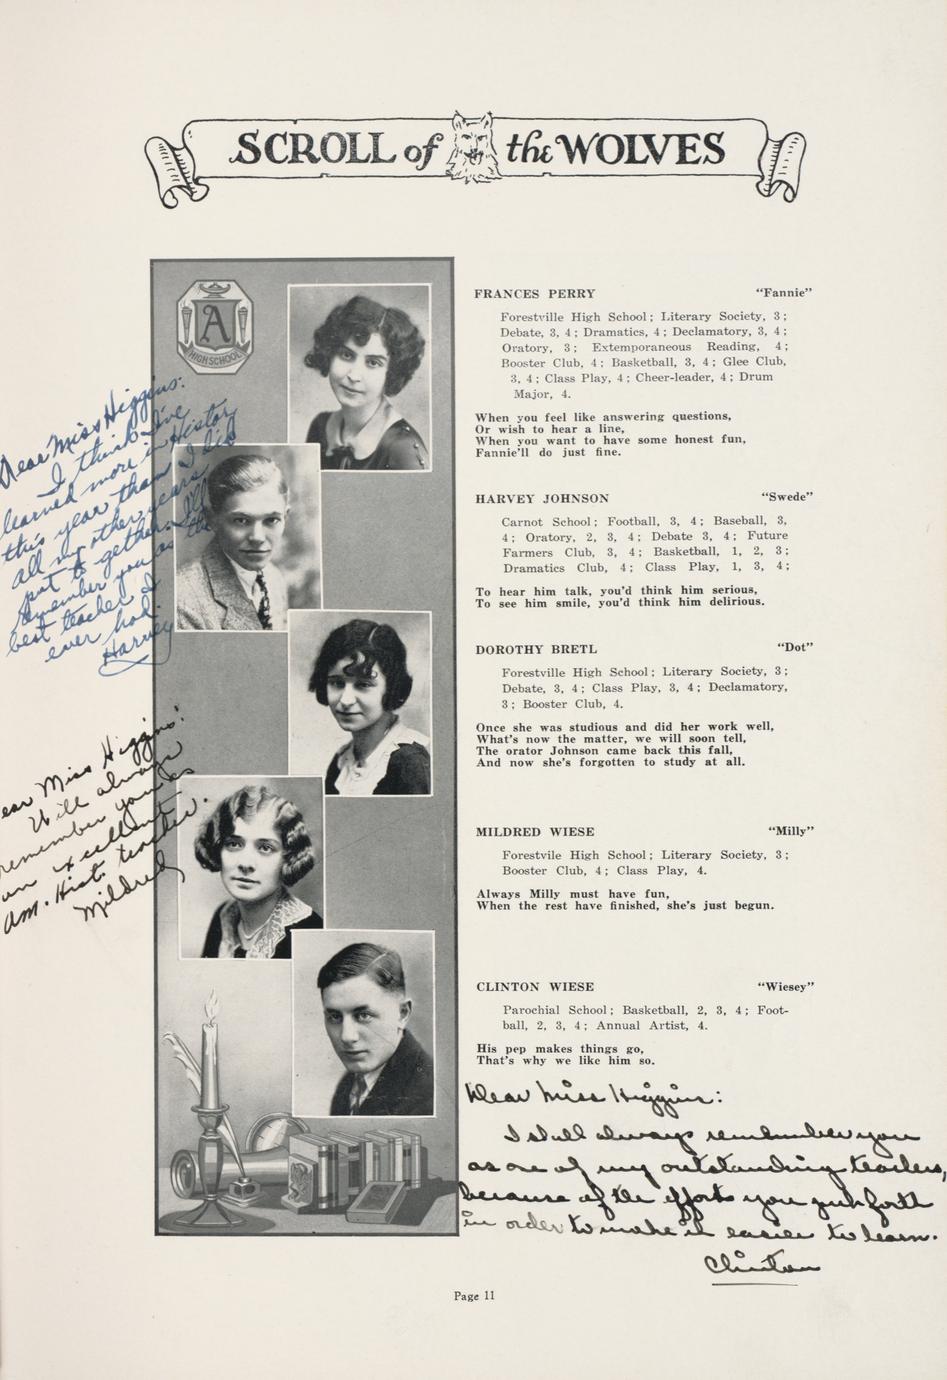 SCROLL of the WOLVES
A
HIGH SCHOOL
FRANCES PERRY "Fannie"
Forestville High School; Literary Society, 3;
Debate, 3, 4; Dramatics, 4; Declamatory, 3, 4;
Oratory, 3; Extemporaneous Reading, 4;
Booster Club, 4; Basketball, 3, 4; Glee Club,
3, 4; Class Play, 4; Cheer-leader, 4; Drum
Major, 4.
When you feel like answering questions,
Or wish to hear a line,
When you want to have some honest fun,
Fannie'll do just fine.
HARVEY JOHNSON "Swede"
Carnot School; Football, 3, 4; Baseball, 3,
4; Oratory, 2, 3, 4; Debate 3, 4; Future
Farmers Club, 3, 4; Basketball, 1, 2, 3;
Dramatics Club, 4; Class Play, 1, 3, 4;
To hear him talk, you'd think him serious,
To see him smile, you'd think him delirious.
DOROTHY BRETL "Dot"
Forestville High School; Literary Society, 3;
Debate, 3, 4; Class Play, 3, 4; Declamatory,
3; Booster Club, 4.
Once she was studious and did her work well,
What's now the matter, we will soon tell,
The orator Johnson came back this fall,
And now she's forgotten to study at all.
MILDRED WIESE "Milly"
Forestvile High School; Literary Society, 3;
Booster Club, 4; Class Play, 4.
Always Milly must have fun,
When the rest have finished, she's just begun.
CLINTON WIESE "Wiesey"
Parochial School; Basketball, 2, 3, 4; Foot-
ball, 2, 3, 4; Annual Artist, 4.
His pep makes things go,
That's why we like him so.
Dear Miss Higgins:
I think I've
learned more in History
this year than I did
all my other years
put to gether. I'll
remember you as the
best teacher I
ever had.
Harvey
ear Miss Higgins:
Will always
remember you as
an excellent
Am. Hist. teacher.
Mildred
Dear Miss Higgins:
I shall always remember you
as one of my outstanding teachers,
because of the efforts you put forth
in order to make it easier to learn.
Clinton
Page 11